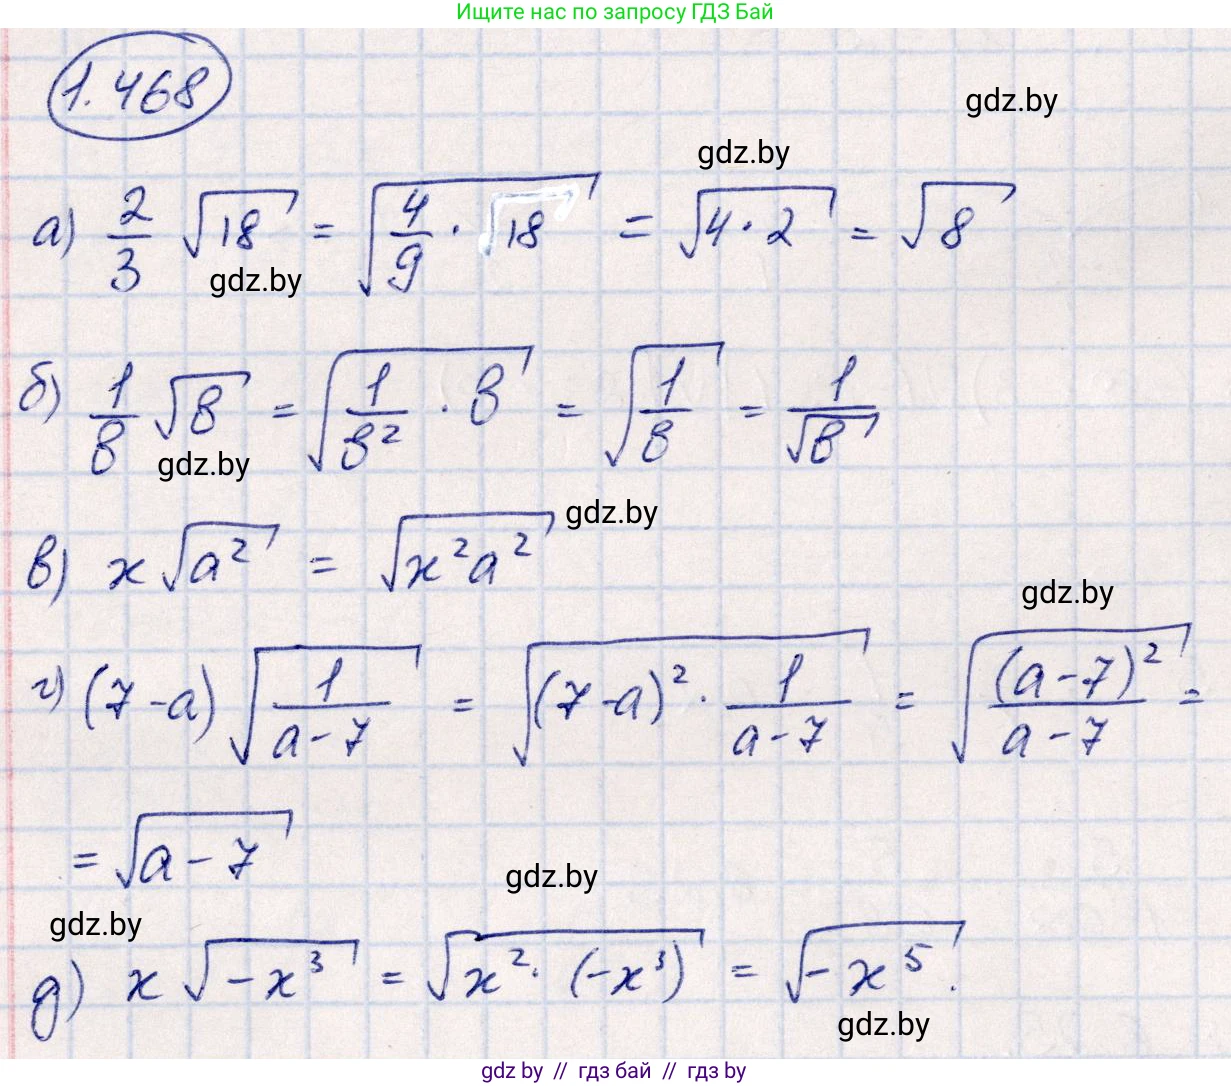 Ищите нас по запросу ГДЗ Бай
1.468
gdz.by
gdz.by
а) 2/3 √18 = √(4/9 · 18) = √(4·2) = √8
gdz.by
б) 1/в √в = √(1/в² · в) = √(1/в) = 1/√в
gdz.by
gdz.by
в) x √a² = √(x²a²)
gdz.by
г) (7-a) √(1/(a-7)) = √((7-a)² · 1/(a-7)) = √((a-7)²/(a-7)) =
= √(a-7)
gdz.by
gdz.by
д) x √(-x³) = √(x² · (-x³)) = √(-x⁵).
gdz.by
gdz.by // гдз бай // гдз by